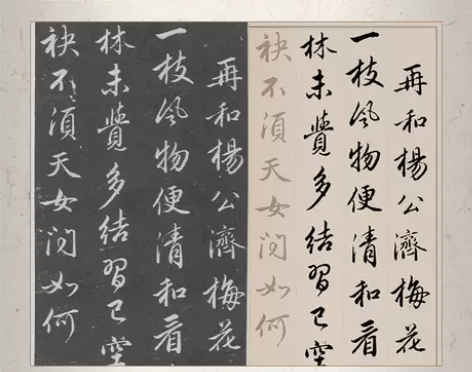 再和楊公濟梅花
一枝風物便清和看
林未覺多結習已空
袂不須天女問如何
再和楊公濟梅花
一枝風物便清和看
林未覺多結習已空
袂不須天女問如何